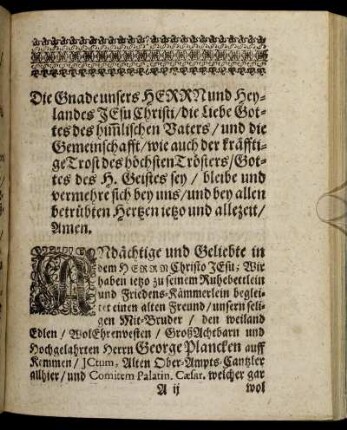 Die Gnade unsers HERRN und Hey-
landes JEsu Christi/die Liebe Got-
tes des him̃lischen Vaters/und die
Gemeinschafft/wie auch der kräffti-
ge Trost des höchsten Trösters/Got-
tes des H. Geistes sey / bleibe und
vermehre sich bey uns/und bey allen
betrübten Hertzen ietzo und allezeit/
Amen.
ANdächtige und Geliebte in
dem HERRN Christo JEsu; Wir
haben ietzo zu seinem Ruhebettlein
und Friedens-Kämmerlein beglei-
tet einen alten Freund/unsern seli-
gen Mit-Bruder / den weiland
Edlen / WolEhrenvesten / GroßAchtbarn und
Hochgelahrten Herrn George Plancken auff
Kemmen / JCtum, Alten Ober-Ampts-Cantzler
allhier/und Comitem Palatin. Cæsar. welcher gar
A ij
wol